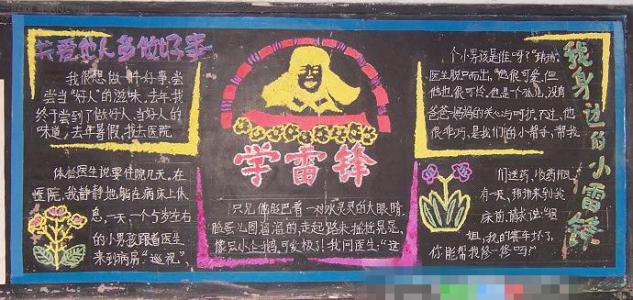 关爱他人多做好事
我很想做一件好事,尝
尝当"好人"的滋味,去年我
终于尝到了做好人、当好人的
味道,去年暑假,我去医院
体检医生说要住院几天,在
医院,我静静地躺在病床上休
息,一天,一个6岁左右
的小男孩跟着医生
来到病房"巡视"。
学雷锋
只见他眨巴着一对水灵灵的大眼睛,
脸蛋儿圆溜溜的,走起路来摇摇晃晃,
像只小企鹅,可爱极了!我问医生:"这
个小男孩是谁呀?"
医生脱口而出,"他很可爱,但
他也很可怜,他是个孤儿,没有
爸爸妈妈的关心与呵护,不过,他
很乖巧,是我们的小帮手,帮我
们送药,收药瓶
有一天,
床前,
姐,我的赛车坏了,
你能帮我修一修吗?"
我身边的小雷锋